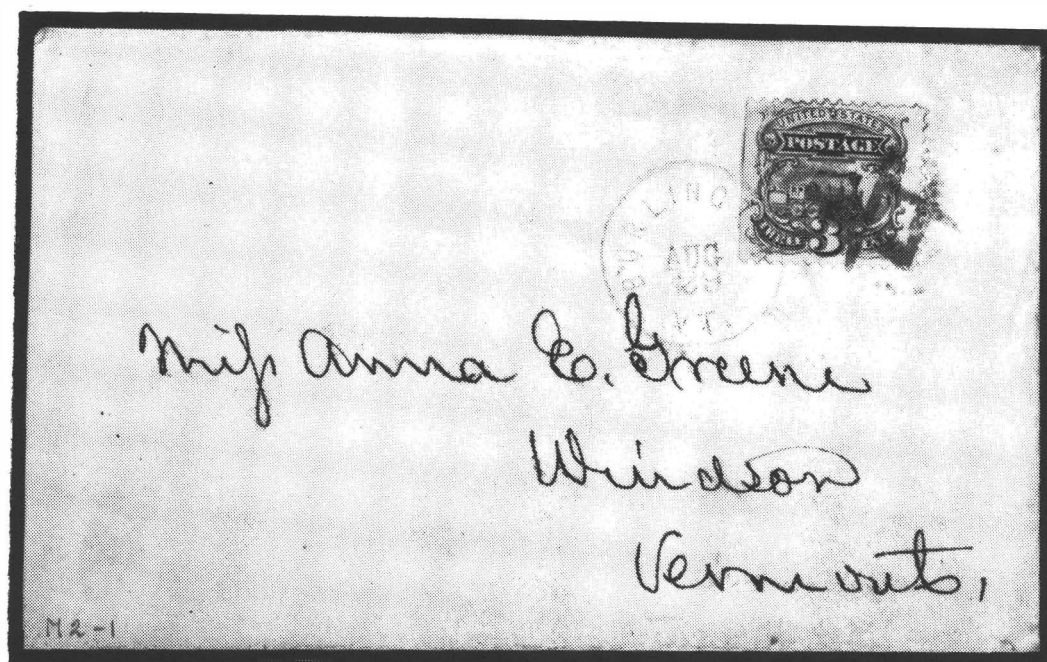 UNITED STATES
POSTAGE
3
AUG
VT.
Miss Anna E. Greene
Windsor
Vermont.
M2-1